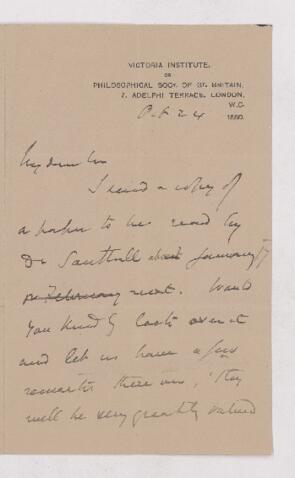 VICTORIA INSTITUTE,
OR
PHILOSOPHICAL SOCY. OF GT. BRITAIN,
7, ADELPHI TERRACE, LONDON,
W.C.
Oct 24 1890.
My dear Sir
I send a copy of
a paper to be read by
Dr Southall about January
or February next. Would
you kindly look over it
and let us have a few
remarks thereon, They
will be very greatly valued